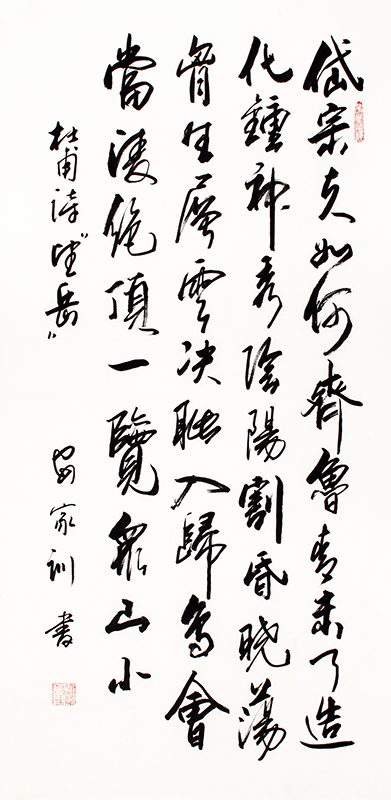 岱宗夫如何齊魯青未了造
化鍾神秀陰陽割昏晓蕩
胷生層雲决眦入歸鳥會
當凌絕頂一覽眾山小
杜甫詩“望岳”
家訓 書